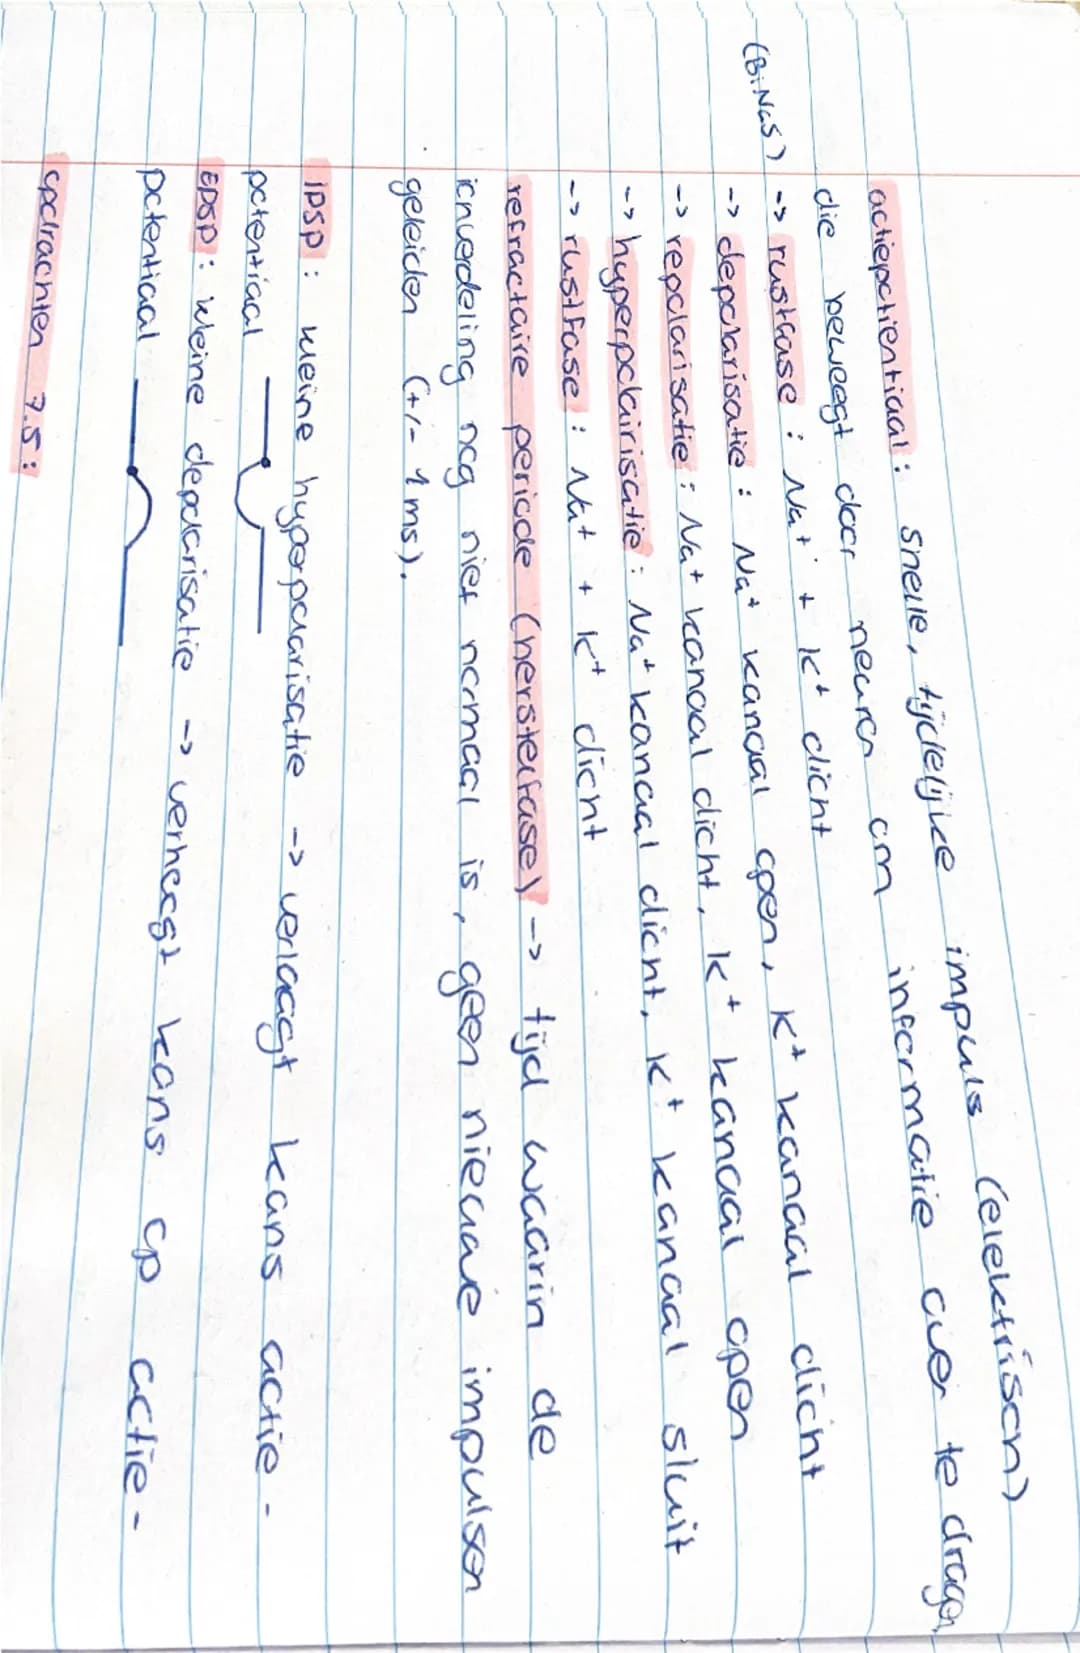 actiepotentiaal : snelle, tijdelijke impuls (elektrisch)
die beweegt door neuron om informatie over te dragen
(BiNaS) -> rustfase : Na+ + K+ dicht
-> depolarisatie : Na+ kanaal open, K+ kanaal dicht
-> repolarisatie : Na+ kanaal dicht, K+ kanaal open
-> hyperpolairisatie : Na+ kanaal dicht, K+ kanaal sluit
-> rustfase : Na+ + K+ dicht
refractaire periode (herstelfase) -> tijd waarin de
ionverdeling nog niet normaal is, geen nieuwe impulsen
geleiden (+/- 1 ms).
IPSP : kleine hyperpolarisatie -> verlaagt kans actie-
potentiaal
EPSP : kleine depolarisatie -> verhoogt kans op actie-
potentiaal
opdrachten 7.5 :